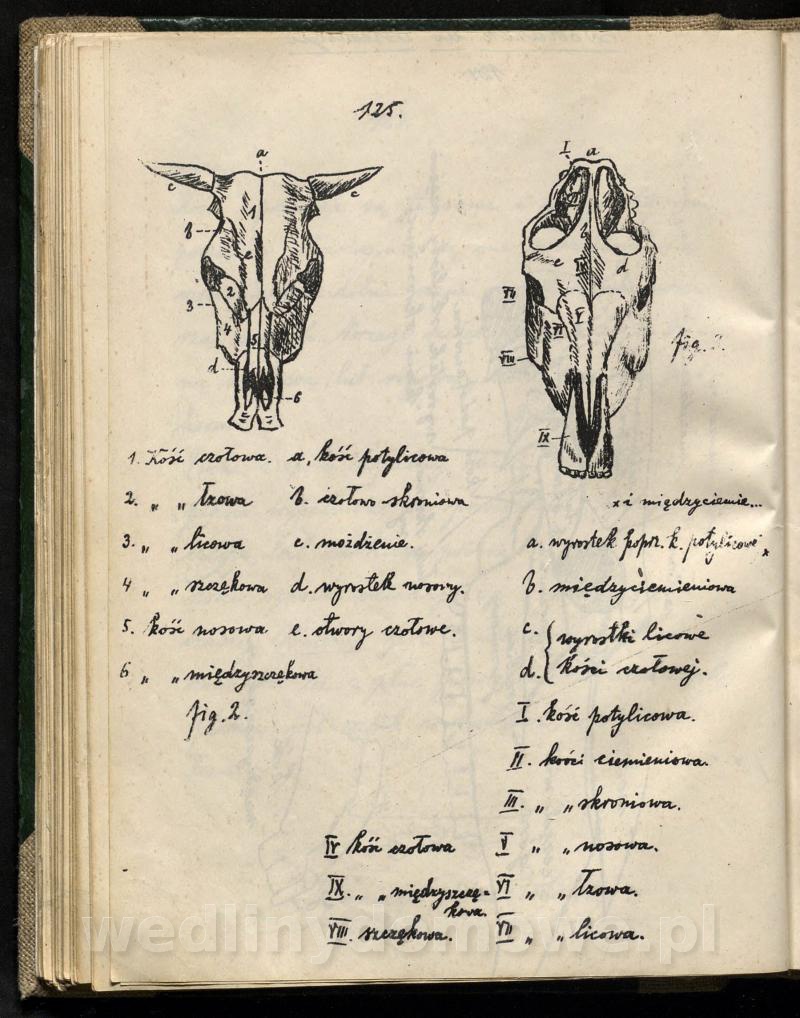 125.
I
a
a
c
c
1
b
b
e
2
c
d
IV
3
VII
V
4
VI
5
d
VIII
fig. 3.
6
IX
1. Kość czołowa. a, kość potylicowa
2. " " łzowa b. czołowo skroniowa
x i międzyciemie...
3. " " licowa c. możdżenie.
a. wyrostek poprz. k. potylicowej x
4 " " szczękowa d. wyrostek nosowy.
b. międzyciemieniowa
5. kość nosowa e. otwory czołowe.
c. { wyrostki licowe
6 " " międzyszczękowa
d. { kości czołowej.
fig. 2.
I. kość potylicowa.
II. kości ciemieniowa.
III. " " skroniowa.
IV kość czołowa V " " nosowa.
IX. " " międzyszczę=
kowa.
VI " " łzowa.
VIII. szczękowa. VII " " licowa.
wedlinydomowe.pl